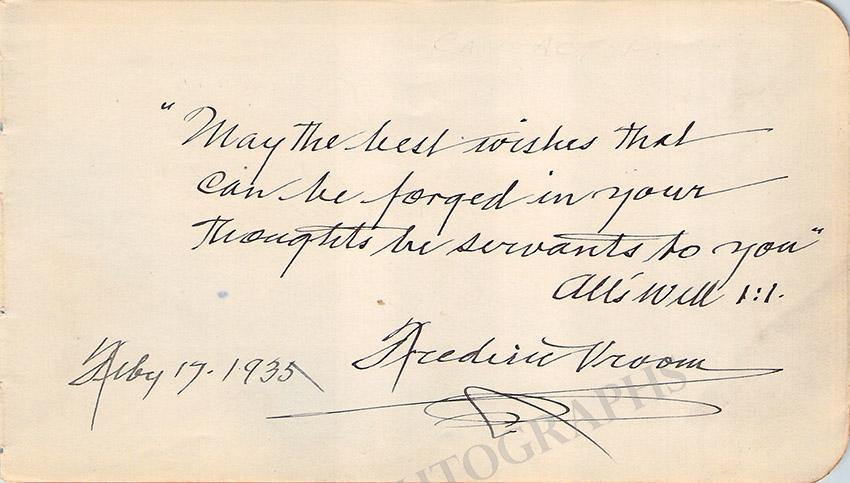 "May the best wishes that
can be forged in your
thoughts be servants to you"
All's Well 1:1.
Frederic Vroom
Feby 17. 1935
UTOGRAPHS